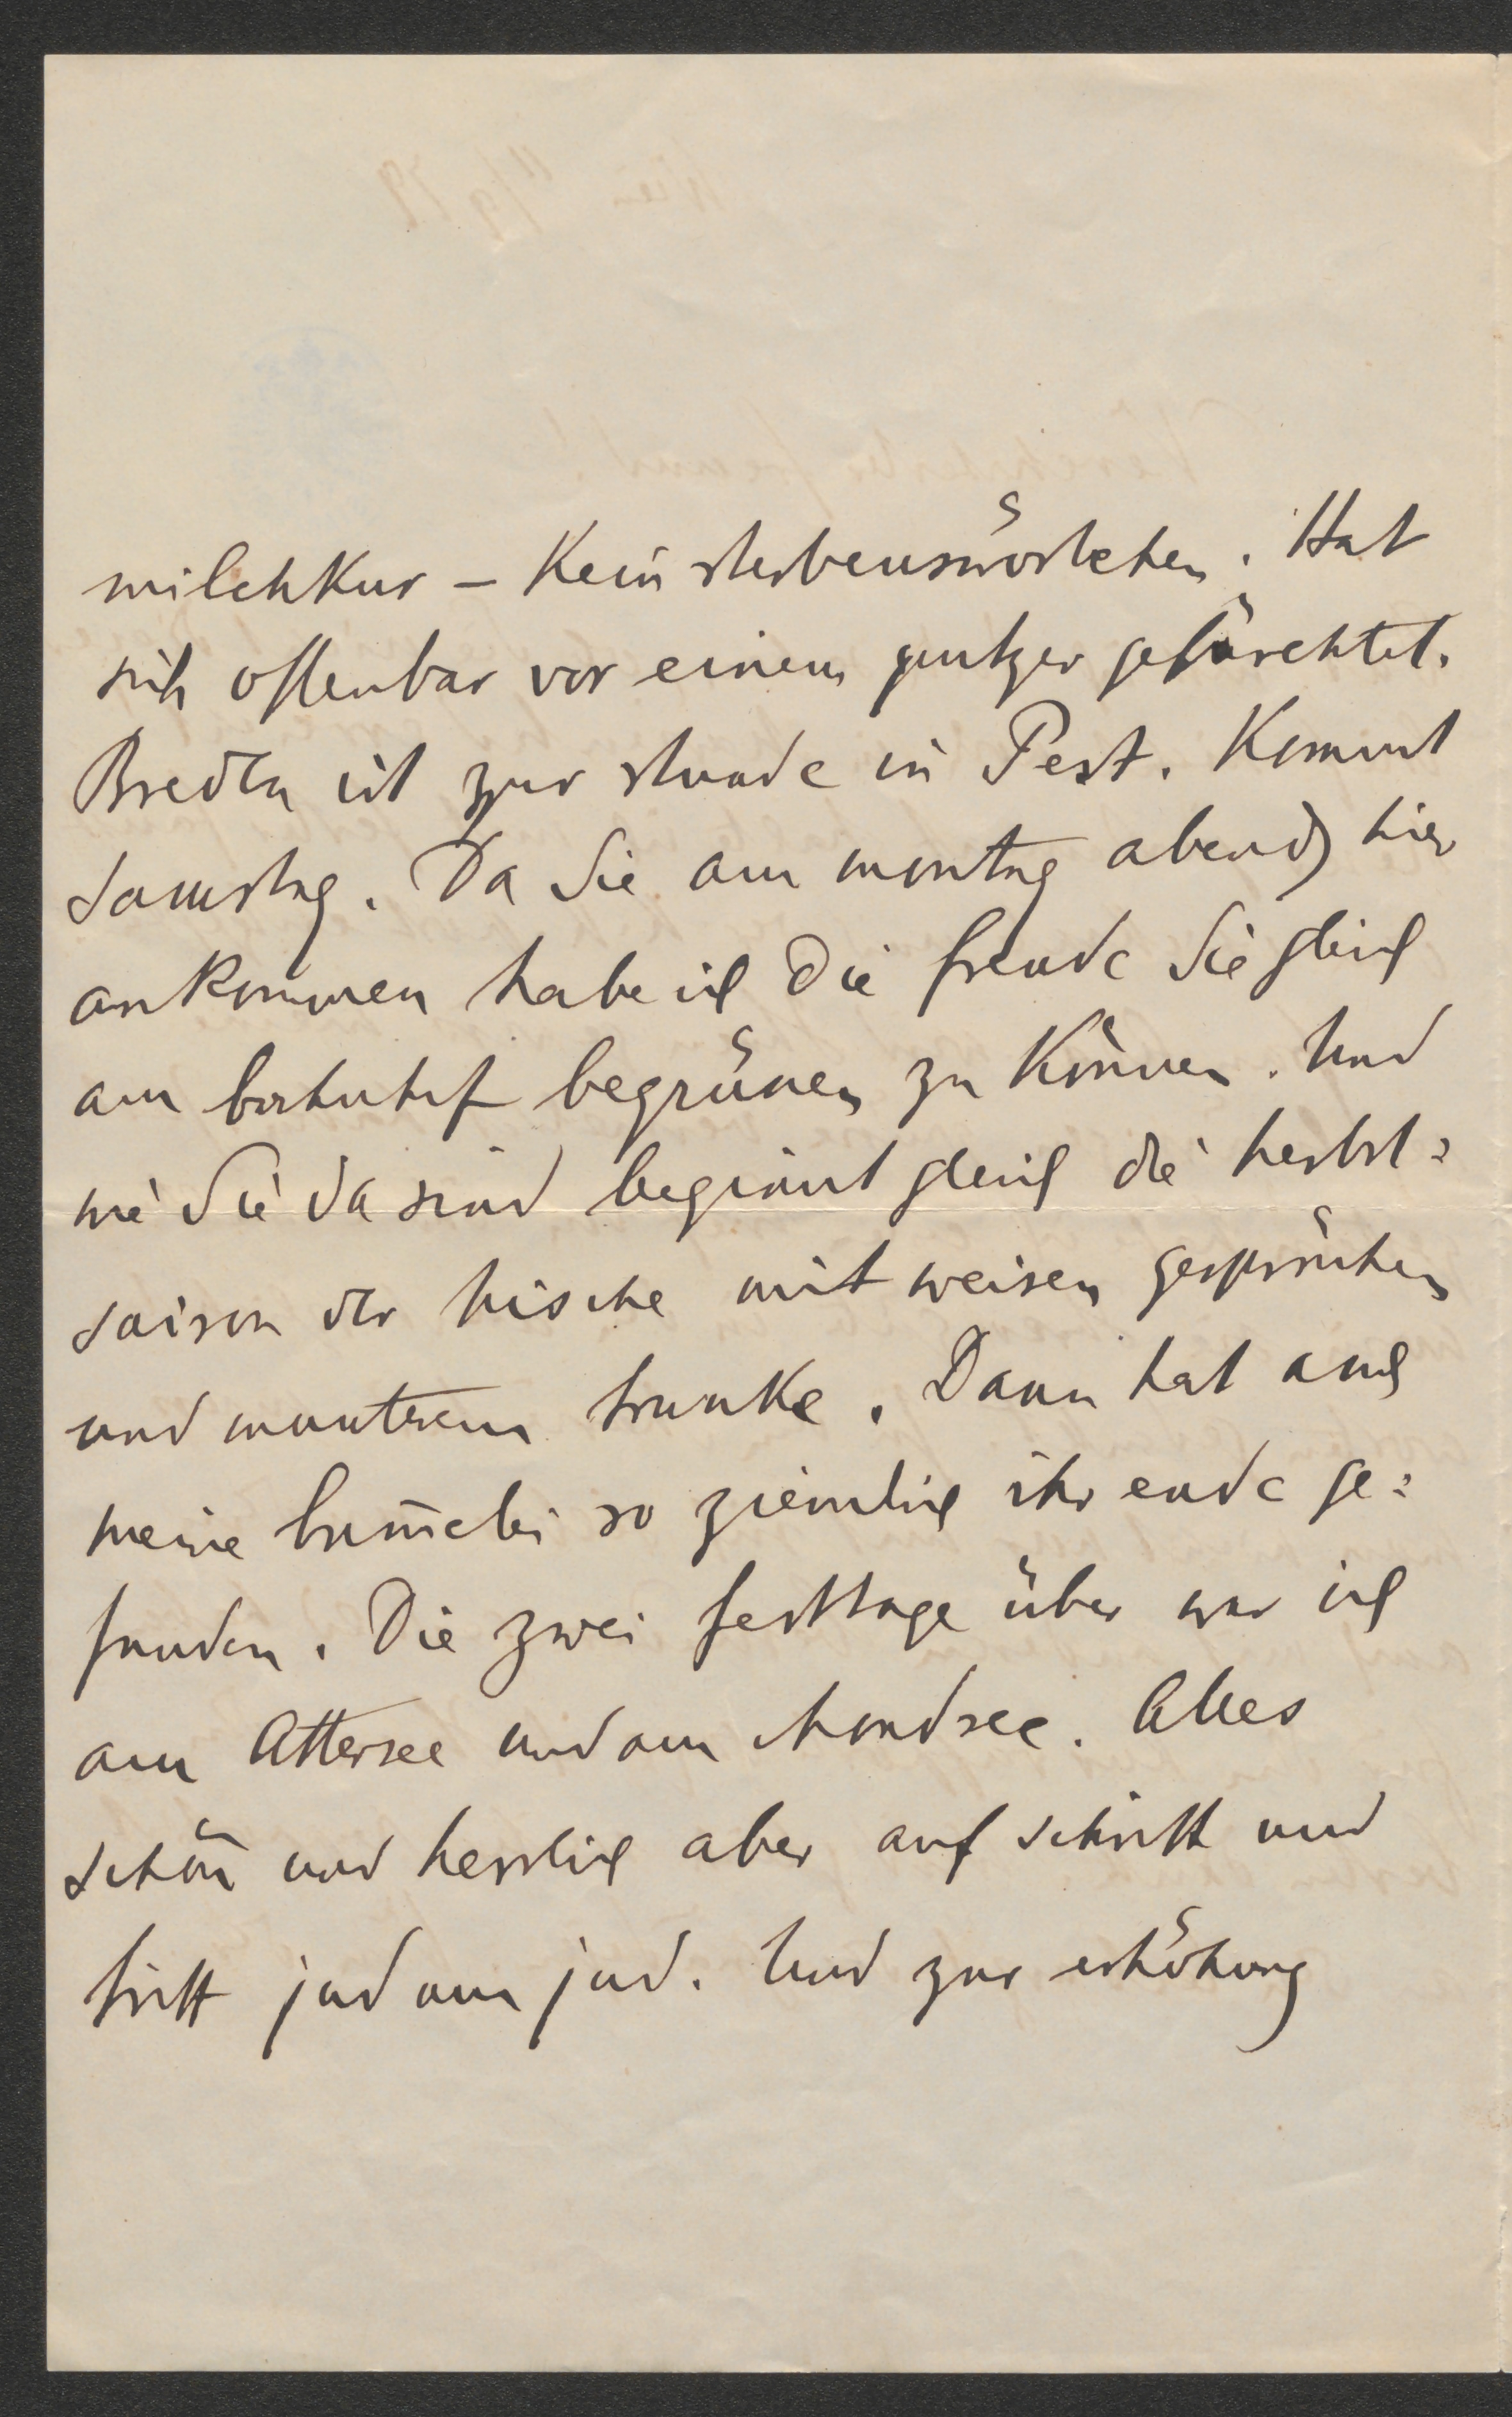 milchkur – Kein sterbenswörtchen. Hat
sich offenbar vor einem putzer gefürchtet.
Bredta ist zur stunde in Pest. Kommt
Samstag. Da Sie am montag abends hier
ankommen habe ich die freude Sie gleich
am bahnhof begrüssen zu können. Und
wie Sie da sind beginnt gleich die herbst=
saison der tische mit weisen gesprächen
und muntrem trunke. Dann hat auch
meine bum̄elei so ziemlich ihr ende ge=
funden. Die zwei festtage über war ich
am Attersee und am Mondsee. Alles
schön und herrlich aber auf schritt und
tritt jud am jud. Und zur erhöhung